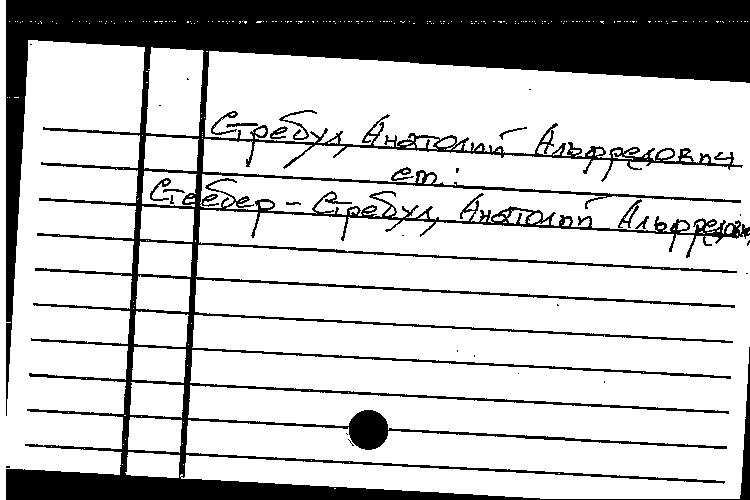 Стребул, Анатолий Альфредович
см.:
Стебер - Стребул, Анатолий Альфредович